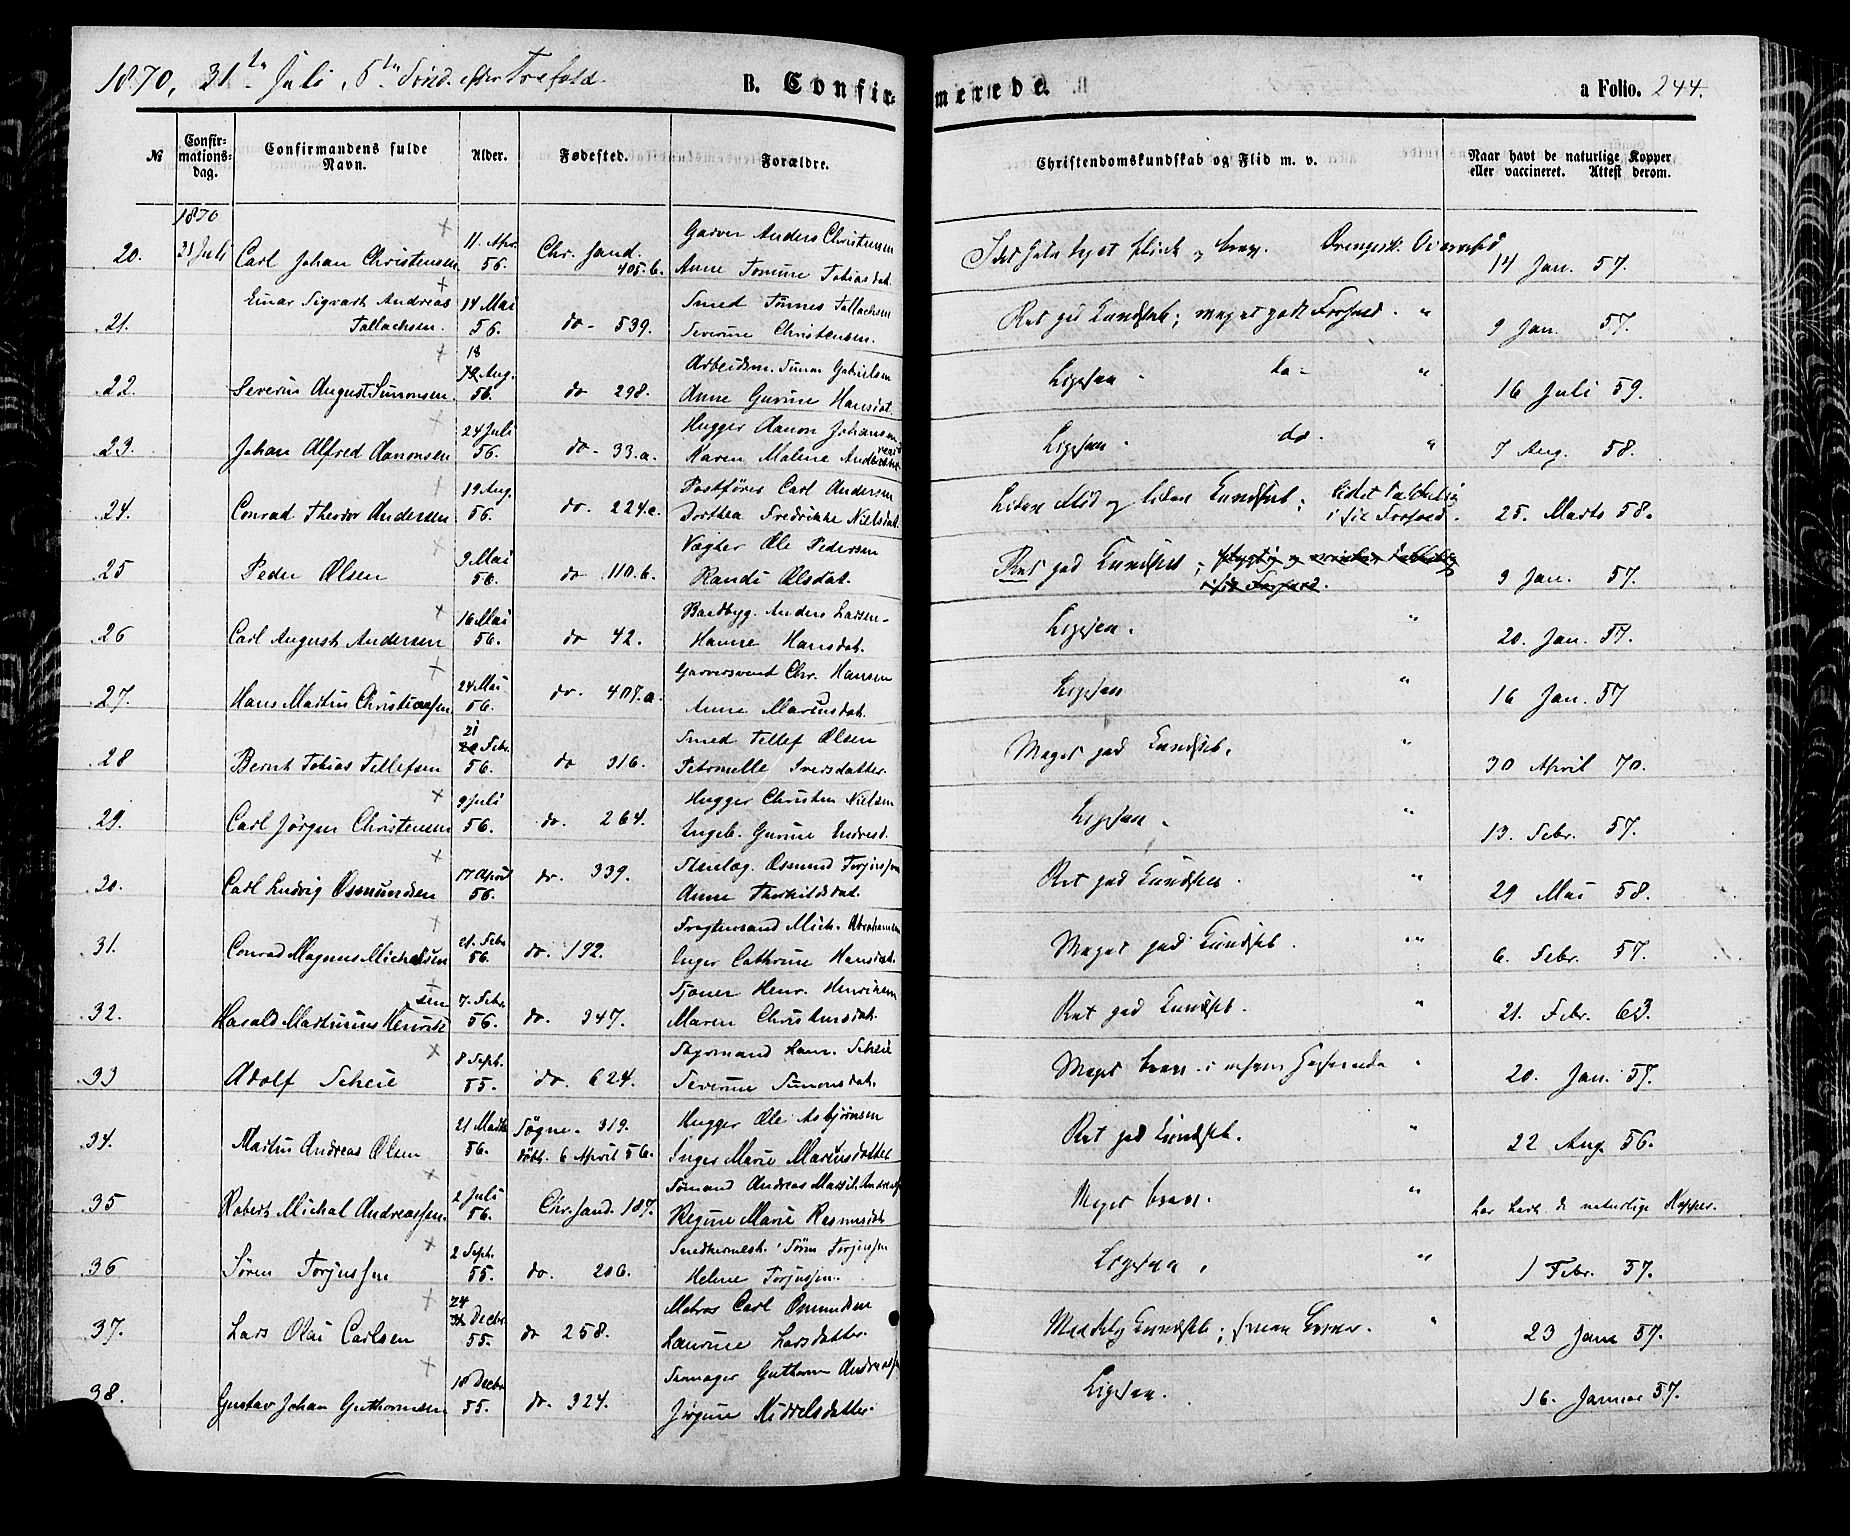 1870, 31te Juli, 5te Sønd. efter Trefold.
B. Confirmerede.
a Folio. 244.
No
Confirmationsdag.
Confirmandens fulde Navn.
Alder.
Fødested.
Forældre.
Christendomskundskab og Flid m. v.
Naar havt de naturlige Kopper eller vaccineret. Attest derom.
1870
20. 31 Juli Carl Johan Christensen 11. Apr. 56. Chr. sand. 405.b. Garver Anders Christensen
Anne Tomine Tobiasdat. meget flink og brav. 14 Jan. 57.
21. Einar Sigvart Andreas Tallachsen. 14 Mai 56. do - 539. Smed Tønnes Tallachsen
Severine Christensen. Ret god Kundskab; meget godt Forhold. " 9 Jan. 57.
22. Severin August Simonsen. 18 Aug. 56. do 298. Arbeidsm. Simon Gabrielsen
Anne Gurine Hansdat. Ligesaa - do - " 16 Juli 59.
23. Johan Alfred Aanonsen 24 Juli 56. do - 33.a. Hugger Aanon Johansen
Karen Malene Ligesaa - do. " 7 Aug. 58.
24. Conrad Theodor Andersen 19 Aug. 56. do - 224.c. Postfører Carl Andersen
Dorthea Fredrikke Nielsdat. Liden Flid og liden Kundskab; i sit Forhold. 25. Marts 58.
25 Peder Olsen 9 Mai 56. do 110.b. Vægter Ole Pedersen
Randi Olsdat. Ret god Kundskab; i sit Forhold. 9 Jan. 57.
26 Carl August Andersen 16 Mai 56. do 42. Baadbyg. Anders Larsen
Hanne Hansdat. Ligesaa. " 20. Jan. 57.
27. Hans Martin Christiansen 24 Mai 56. do. 407.a. Garversvend Chr. Hansen
Anne Mariusdat. Ligesaa " 16 Jan. 57
28 Bernt Tobias Tellefsen 21 Febr. 56. do 316. Smed Tellef Olsen
Petronelle Iversdatter. Meget god Kundskab. " 30 April 70.
29. Carl Jørgen Christensen 9 Juli 56. do. 264. Hugger Christen Nielsen
Ingeb. Gurine Endresd. Ligesaa. " 13. Febr. 57.
30. Carl Ludvig Osmundsen 17 April 56. do. 339. Osmund Torjussen
Anne Therkildsdat. Ret god Kundskab. " 29 Mai 58.
31. Conrad Magnus Michalsen 21. Febr. 56. do. 192. Mich. Abrahamsen
Inger Cathrine Hansdat. Meget god Kundskab. " 6. Febr. 57.
32. Harald Martinius Henriksen 7. Febr. 56. do. 347. Henr. Henriksen
Maren Christensdat. Ret god Kundskab. " 21. Febr. 63.
33 Adolf Scheie 8 Sept. 55. do. 624. Styrmand Scheie
Severine Simonsdat. Meget brav. i " 20. Jan. 57.
34. Martin Andreas Olsen 21 Marts 56. Søgne. 319. døbt. 6 April 56. Hugger Ole Asbjørnsen
Inger Marie Mariusdatter Ret god Kundskab. " 22 Aug. 56.
35 Robert Michal Andreassen. 2 Juli 56. Chr.sand. 187. Sømand Andreas
Regine Marie Rasmusdat. Meget brav. " har havt de naturlige Kopper.
36 Søren Torjussen 2 Sept. 55. do. 206. Snedkermest. Søren Torjussen
Helene Torjussen. Ligesaa. " 1 Febr. 57.
37. Lars Olai Carlsen 24 Decbr. 55. do 258. Matros Carl Omundsen
Laurine Larsdatter. Maadelig Kundskab; " 23 Jan. 57.
38. Gustav Johan Guthormsen 18 Decbr 55. do. 324. Guthorm Andreassen
Jørgine Middelsdatter. Ligesaa. 16. Januar 57.